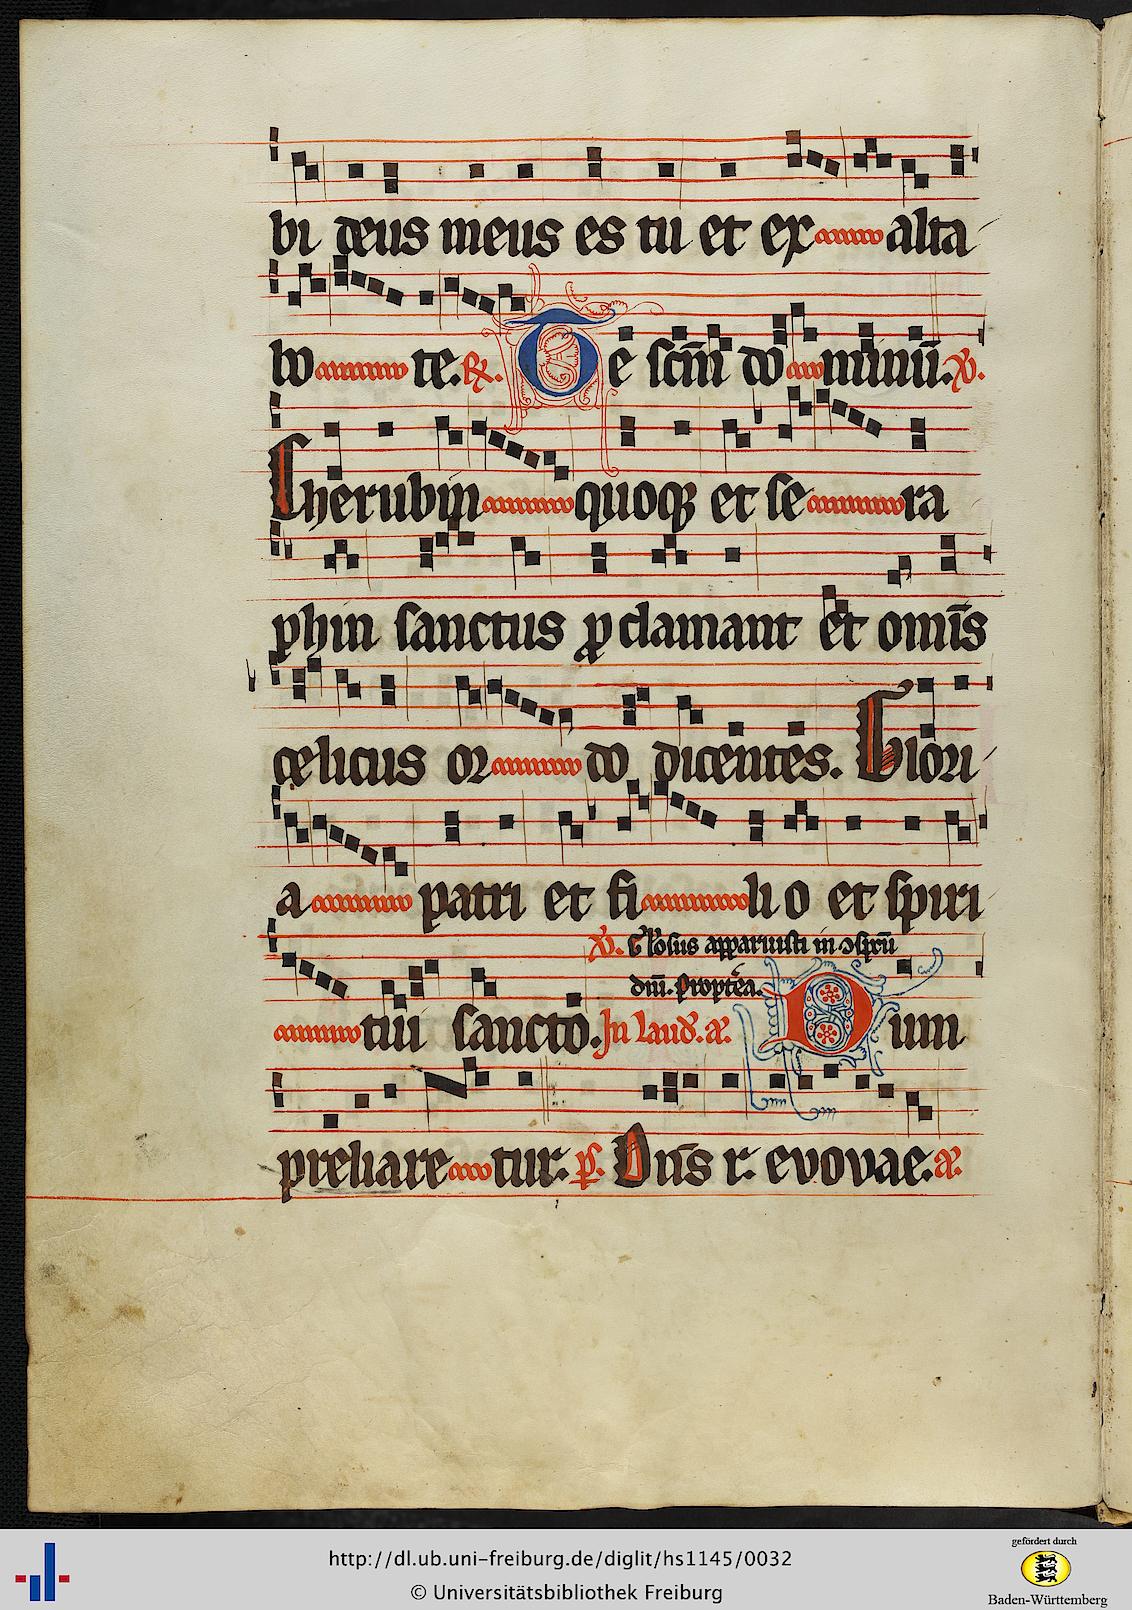 bi deus meus es tu et ex alta
bo te. ℟. Te scm̄ do minuū. ℣.
Cherubin quoqꝫ et se ra
phin sanctus ꝓ clamant et omīs
celicus or do dicentes. Glori
a patri et fi li o et spiri
℣. apparuisti in ↄspcū
dn̄i. Propterea.
tui sancto. In laud. a. Dum
preliare tur. ps. Dn̄s r. evovae. a.
http://dl.ub.uni-freiburg.de/diglit/hs1145/0032
© Universitätsbibliothek Freiburg
gefördert durch
Baden-Württemberg